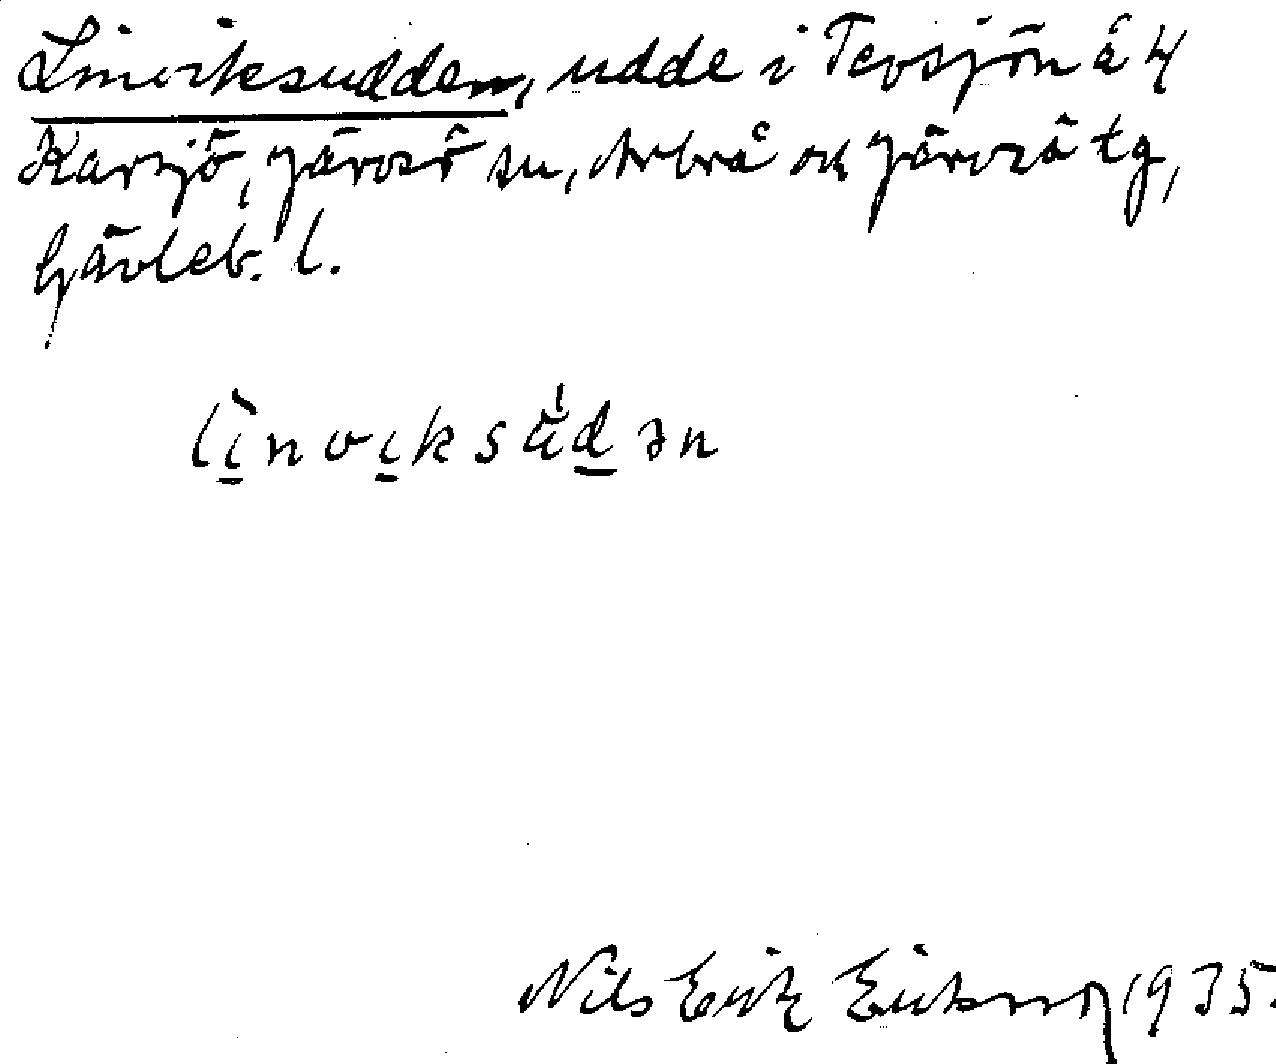 Linviksudden, udde i Tevsjön å 4
Karsjö, Järvsö sn, Arbrå och Järvsö tg,
Gävleb. l.
lìnviksúdən
Nils Erik Eriksson 1935.